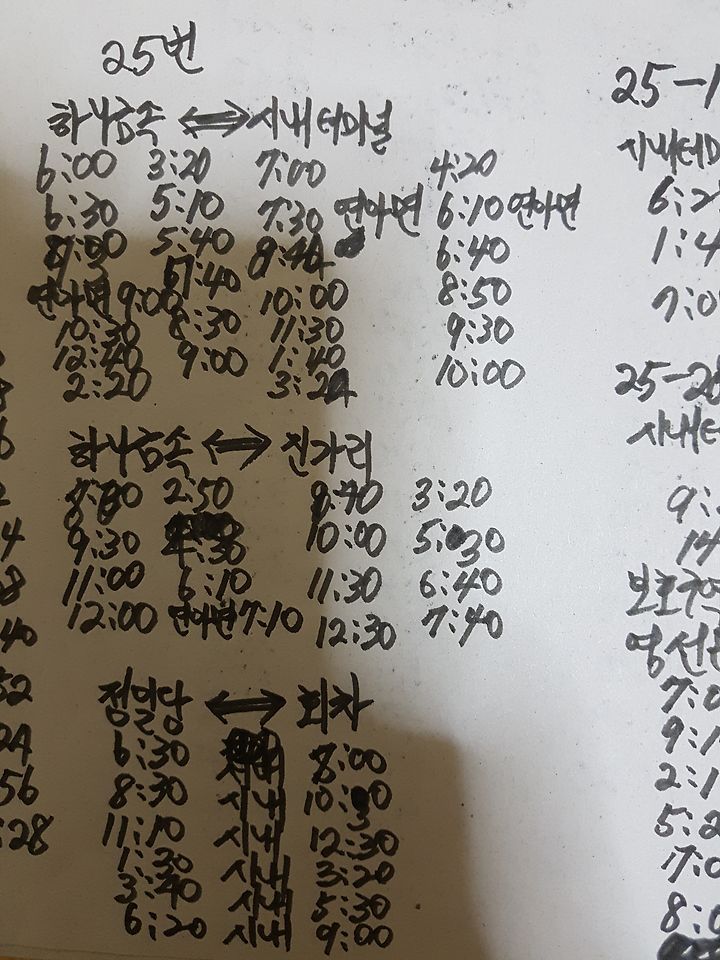 25번
하나금속 ⟺ 시내터미널
6:00 3:20 7:00 4:20
6:30 5:10 7:30 연아면 6:10 연아면
5:40 6:40
연아면 9:00 7:40 10:00 8:50
10:30 8:30 11:30 9:30
12:40 9:00 1:40 10:00
2:20
하나금속 ⟺ 진가리
2:50 3:20
9:30 4:30 10:00 5:30
11:00 6:10 11:30 6:40
12:00 연아면 7:10 12:30 7:40
점일당 ⟺ 회차
6:30 8:00
8:30 시내 10:30
11:10 시내 12:30
1:30 시내 3:20
3:40 시내 5:30
6:20 시내 9:00
25-1
시내터미
6:2
1:4
7:0
25-28
시내터
9:
14
보호구역
영선
7:0
9:1
2:1
5:2
8:0
4
8
40
52
24
56
:28